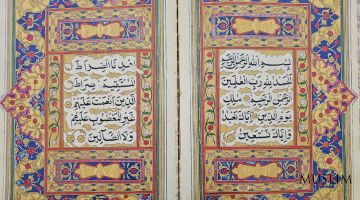 بِسْمِ اللَّهِ الرَّحْمَٰنِ الرَّحِيمِ
الْحَمْدُ لِلَّهِ رَبِّ الْعَالَمِينَ
الرَّحْمَٰنِ الرَّحِيمِ مَالِكِ
يَوْمِ الدِّينِ إِيَّاكَ نَعْبُدُ
وَإِيَّاكَ نَسْتَعِينُ
اهْدِنَا الصِّرَاطَ
الْمُسْتَقِيمَ صِرَاطَ
الَّذِينَ أَنْعَمْتَ عَلَيْهِمْ
غَيْرِ الْمَغْضُوبِ عَلَيْهِمْ
وَلَا الضَّالِّينَ
MUSLIM